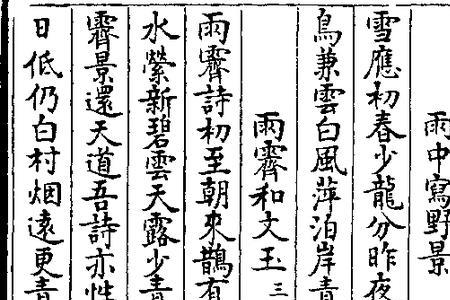 雨中寫野景
雪應初春少龍分昨夜
鳥兼雲白風萍泊岸青
雨霽和文玉三
雨霽詩初至朝來鵲有
水縈新碧雲天露少青
霽景還天道吾詩亦性
日低仍白村烟遠更青